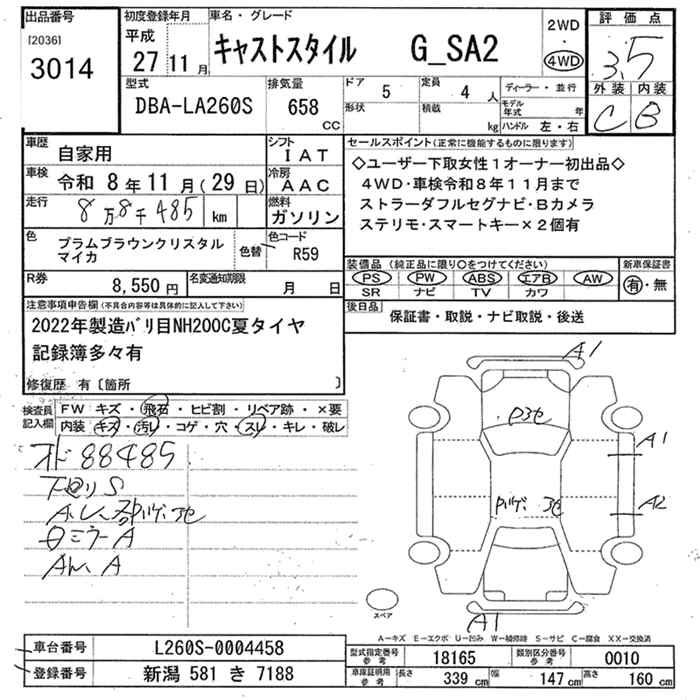 出品番号
[2036]
3014
初度登録年月
平成
27 11 月
車名・グレード
キャストスタイル G_SA2
2WD
・
4WD
評価点
3.5
外装 内装
C B
型式
DBA-LA260S
排気量
658
CC
ドア
5
定員
4 人
形状
積載
kg
ディーラー・並行
モデル年式 年
ハンドル 左・右
車歴
自家用
シフト
IAT
車検 令和 8年 11月 (29日)
冷房
AAC
走行 8万8千485 km
燃料
ガソリン
色
プラムブラウンクリスタル
マイカ
色替
色コード
R59
R券
8,550円
名変通知期限
月 日
セールスポイント(正常に機能するものに限ります)
◇ユーザー下取女性1オーナー初出品◇
4WD・車検令和8年11月まで
ストラーダフルセグナビ・Bカメラ
ステリモ・スマートキー×2個有
装備品 (純正品に限り○をつけてください)
PS PW ABS エアB AW
SR ナビ TV カワ
新車保証書
有・無
後日品
保証書・取説・ナビ取説・後送
注意事項申告欄(不具合内容等は具体的に記入して下さい)
2022年製造バリ目NH200C夏タイヤ
記録簿多々有
修復歴 有〔箇所 〕
検査員
記入欄
FW キズ・飛石・ヒビ割・リペア跡・×要
内装 キズ・汚レ・コゲ・穴・スレ・キレ・破レ
オド 88485
下回りS
A
A
A
A1
A1
A2
A1
スペア
A―キズ E―エクボ U―凹み W―補修跡 S―サビ C―腐食 XX―交換済
車台番号
L260S-0004458
登録番号
新潟 581 き 7188
型式指定番号
参考
18165
類別区分番号
参考
0010
車庫証明用
参考
長さ
339 cm
幅
147 cm
高さ
160 cm